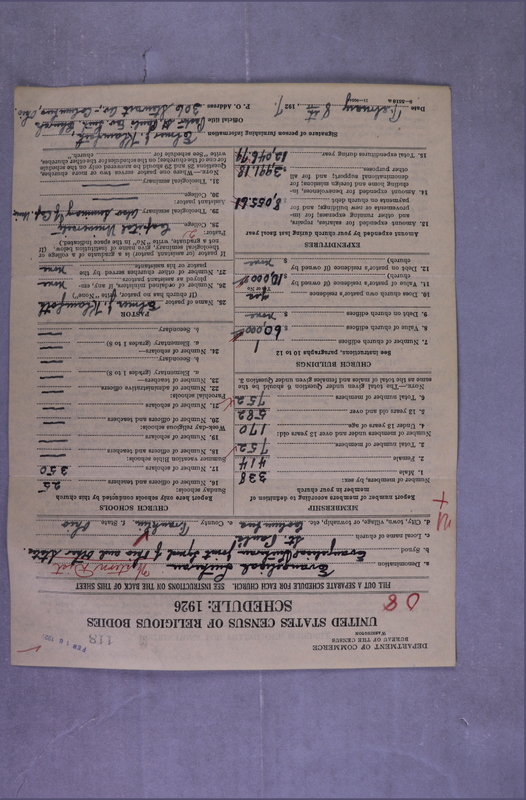 DEPARTMENT OF COMMERCE
BUREAU OF THE CENSUS
WASHINGTON
118
UNITED STATES CENSUS OF RELIGIOUS BODIES
SCHEDULE: 1926
80
FILL OUT A SEPARATE SCHEDULE FOR EACH CHURCH. SEE INSTRUCTIONS ON THE BACK OF THIS SHEET
a. Denomination Evangelical Lutheran Western Dist
b. Synod Evangelical Lutheran Joint Synod of Ohio and Other States
c. Local name of church St. Paul's
d. City, town, village, or township, etc. Columbus e. County Franklin f. State Ohio
MEMBERSHIP
Report number of members according to definition of member in your church
Number of members, by sex:
1. Male 338
2. Female 414
3. Total number of members 752
Number of members under and over 13 years old:
4. Under 13 years of age 170
5. 13 years old and over 582
6. Total number of members 752
NOTE.—The total given under Question 6 should be the same as the total of males and females given under Question 3.
CHURCH BUILDINGS
See instructions, paragraphs 10 to 12
7. Number of church edifices 1
8. Value of church edifices $ 60,000
9. Debt on church edifices $ none
10. Does church own pastor's residence yes
(Yes or No)
11. Value of pastor's residence (if owned by church) $ 10,000
12. Debt on pastor's residence (if owned by church) $ none
EXPENDITURES
Amount expended by your church during last fiscal year
13. Amount expended for salaries, repairs, and other running expenses; for improvements or new buildings; and for payments on church debt 8,055.61
14. Amount expended for benevolences, including home and foreign missions; for denominational support; and for all other purposes 3,991.18
15. Total expenditures during year 12,046.79
CHURCH SCHOOLS
Report here only schools conducted by this church
Sunday schools:
16. Number of officers and teachers 25
17. Number of scholars 350
Summer vacation Bible schools:
18. Number of officers and teachers —
19. Number of scholars —
Week-day religious schools:
20. Number of officers and teachers —
21. Number of scholars —
Parochial schools:
22. Number of administrative officers —
23. Number of teachers—
a. Elementary (grades 1 to 8) —
b. Secondary —
24. Number of scholars—
a. Elementary (grades 1 to 8) —
b. Secondary —
PASTOR
25. Name of pastor Elmer J. Klaumforth
(If church has no pastor, write "None")
26. Number of ordained ministers, if any, employed as assistant pastors none
27. Number of other churches served by the pastor or his assistants none
If pastor (or assistant pastor) is a graduate of a college or theological seminary, give name of institution below. (If not a graduate, write "No" in the space indicated.)
Pastor: 2
28. College Capital University
29. Theological seminary also Seminary of Cap. Univ.
Assistant pastor:
30. College —
31. Theological seminary —
Signature of person furnishing information Elmer J. Klaumforth
Official title Pastor St. Paul's Ev. Luth. Church
P. O. Address 306 Stewart Ave., Columbus, Ohio
Date February 8th, 1927.